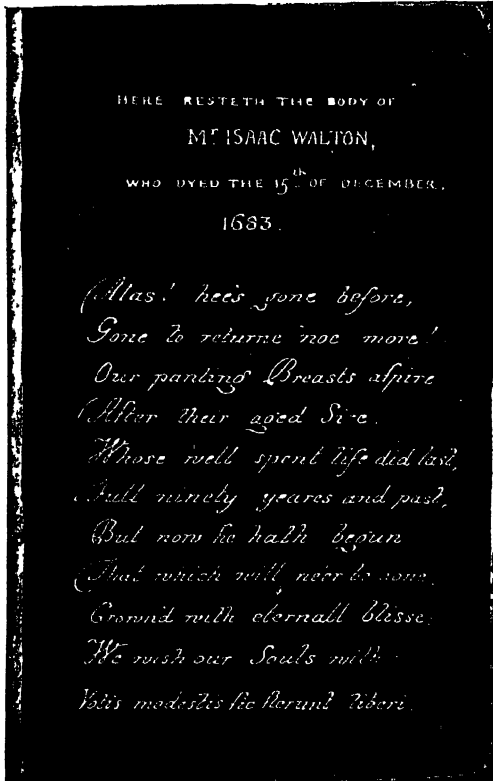 HERE RESTETH THE BODY OF
Mr. ISAAC WALTON,
WHO DYED THE 15th OF DECEMBER,
1683.
Alas! hee's gone before,
Gone to returne noe more!
Our panting Breasts aſpire
After their aged Sire.
Whose well spent life did last,
Full ninety yeares and past,
But now he hath begun
That which will ne'er be done,
Crown'd with eternall blisse:
We wish our Souls with
Votis modestis ſic flerunt liberi.